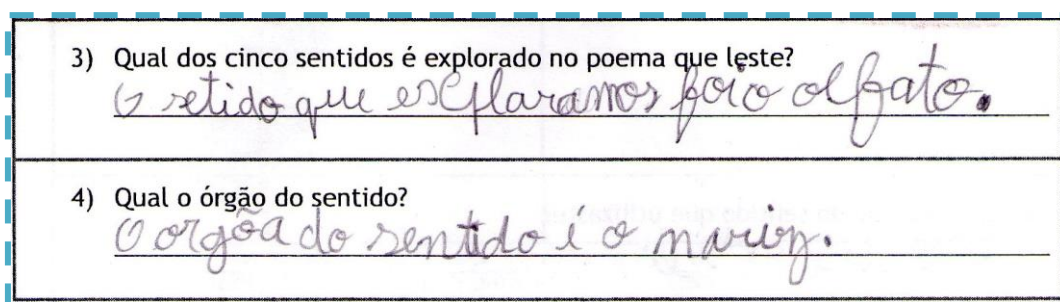 3) Qual dos cinco sentidos é explorado no poema que leste?
O setido que esplaramos foi o olfato.
4) Qual o órgão do sentido?
O orgõa do sentido é o nariz.